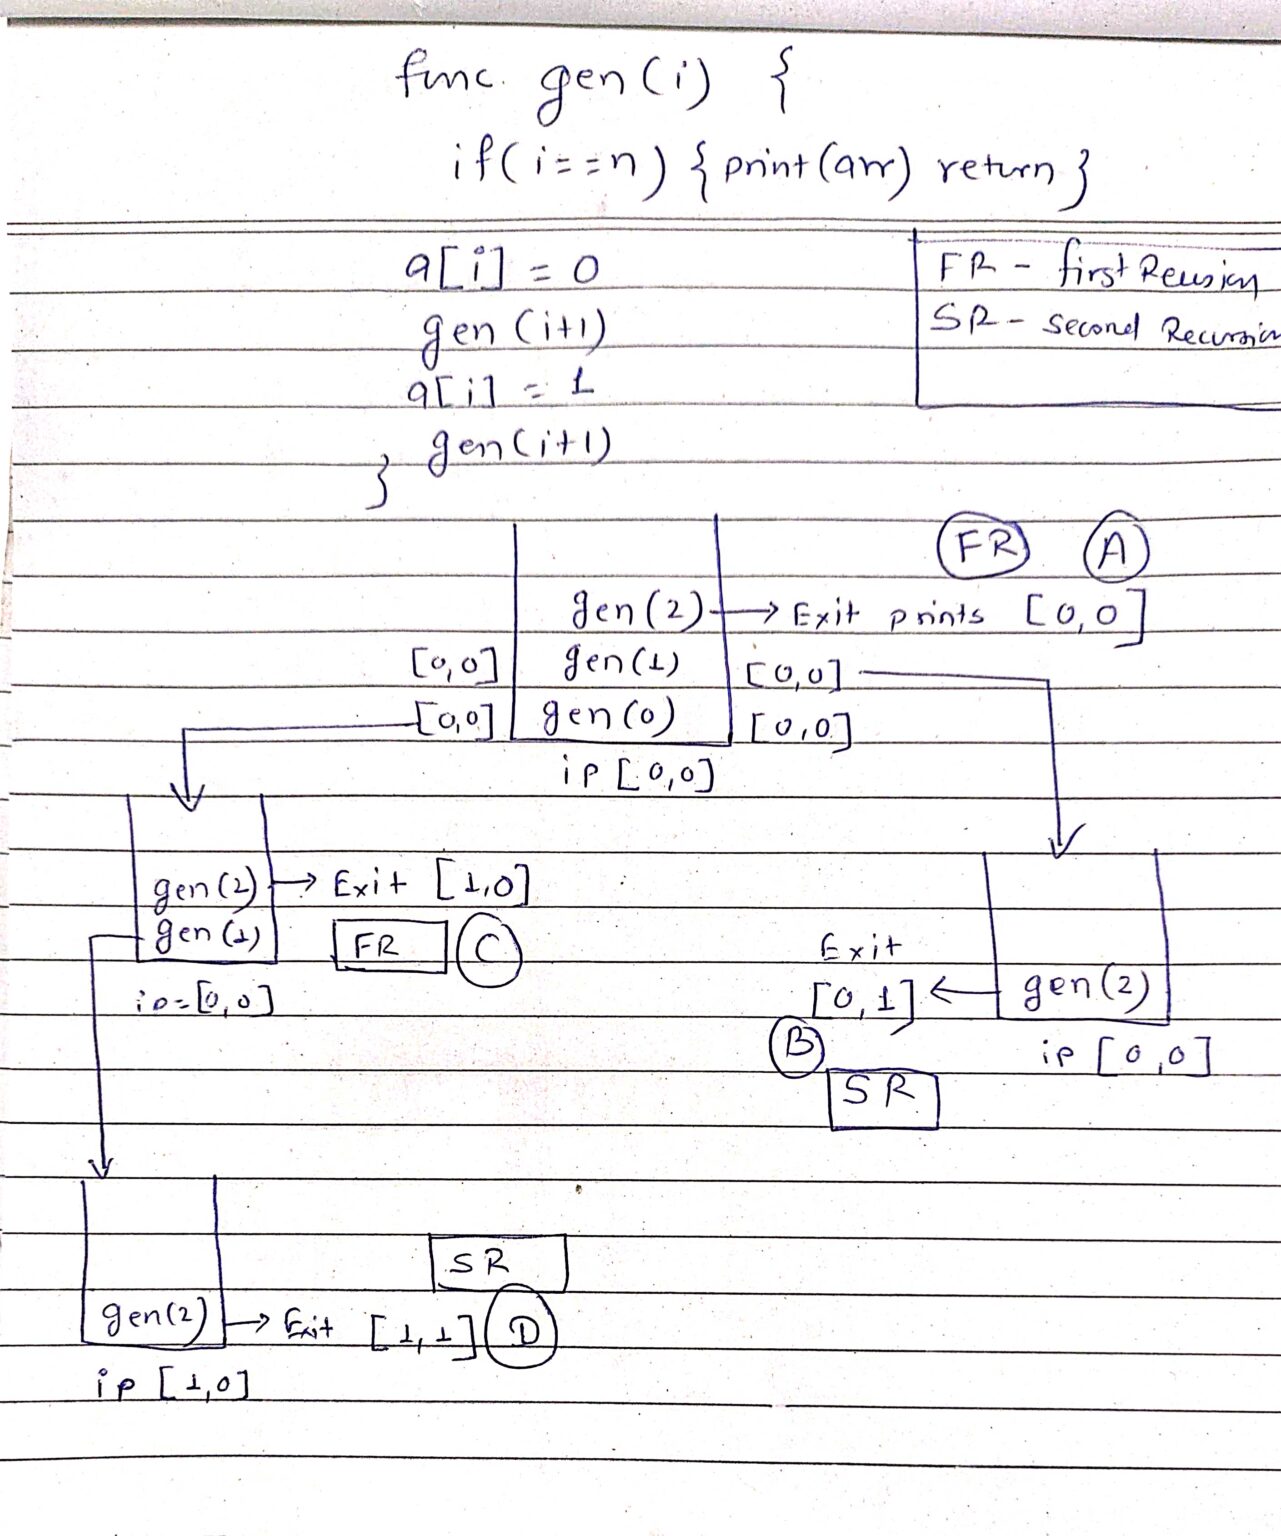 func. gen(i) {
if(i==n) { print(arr) return }
a[i] = 0
gen (i+1)
a[i] = 1
gen(i+1)
}
FR - first Reusion
SR - second Recursion
FR A
gen(2) → Exit prints [0,0]
[0,0] gen(1) [0,0]
[0,0] gen(0) [0,0]
ip [0,0]
gen(2) → Exit [1,0]
gen(1) FR C
ip=[0,0]
Exit
[0,1] ← gen(2)
B ip [0,0]
SR
SR
gen(2) → Exit [1,1] D
ip [1,0]